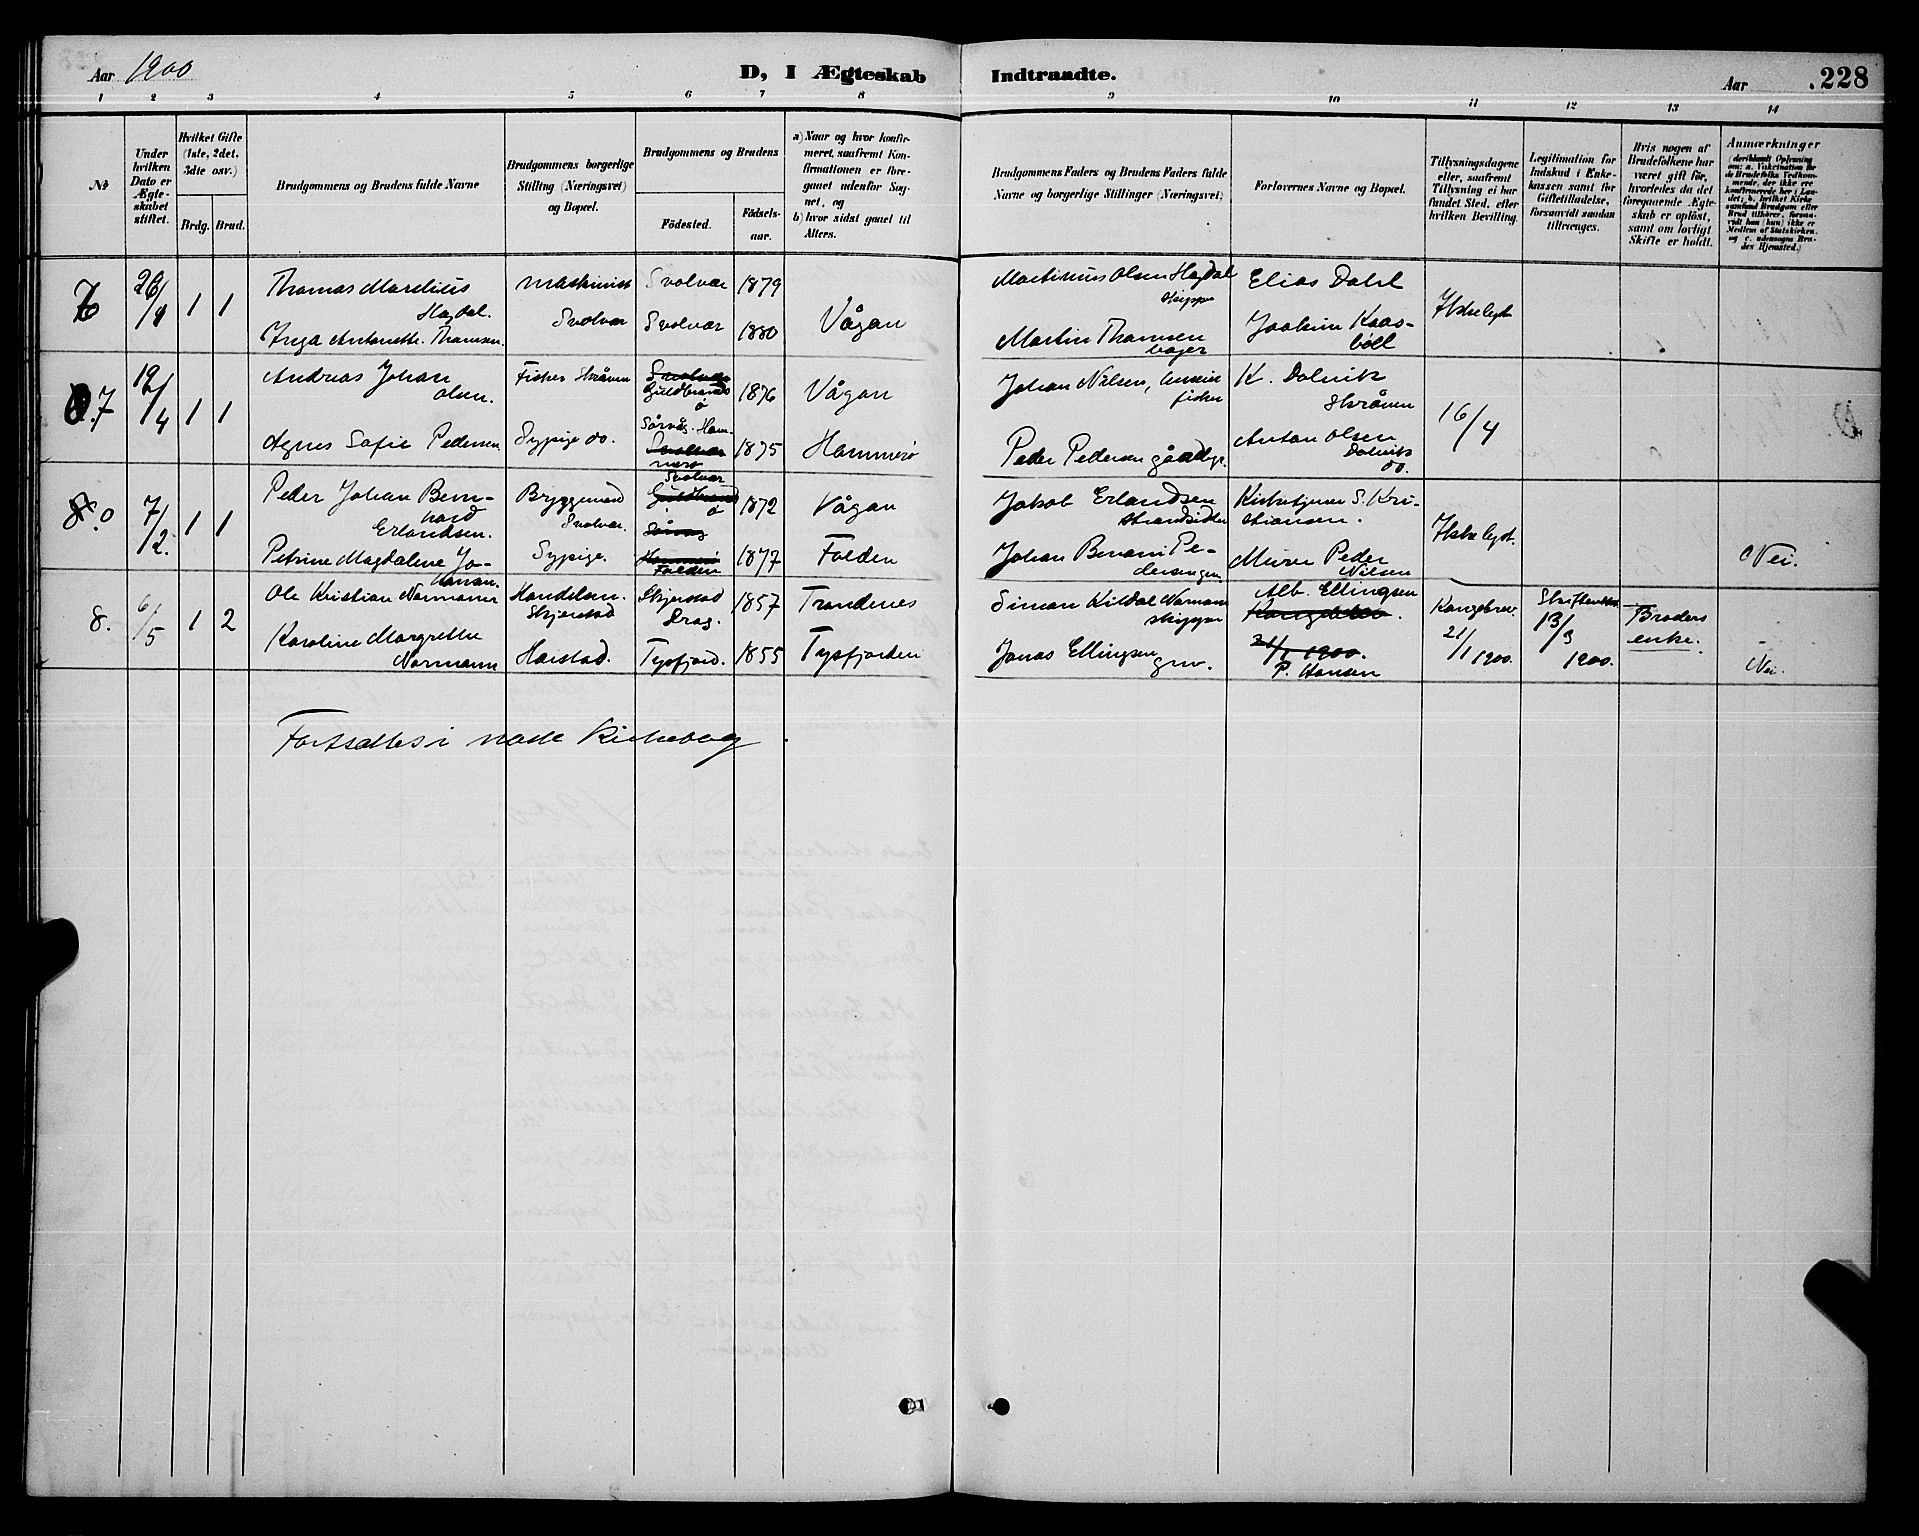 Aar 1900
D, I Ægteskab Indtraadte.
Aar 228
1 2 3 4 5 6 7 8 9 10 11 12 13 14
No
Under hvilken Dato er Ægteskabet stiftet.
Hvilket Gifte (1ste, 2det, 3dte osv.)
Brdg. Brud.
Brudgommens og Brudens fulde Navne
Brudgommens borgerlige Stilling (Næringsvei) og Bopæl.
Brudgommens og Brudens
Fødested.
Fødselsaar.
a) Naar og hvor konfirmeret, saafremt Konfirmationen er foregaaet udenfor Sognet, og
b) hvor sidst gaaet til Alters.
Brudgommens Faders og Brudens Faders fulde Navne og borgerlige Stillinger (Næringsvei)
Forlovernes Navne og Bopæl.
Tillysningsdagene eller, saafremt Tillysning ei har fundet Sted, efter hvilken Bevilling.
Legitimation for Indskud i Enkekassen samt for Giftetilladelse, forsaavidt saadan tiltrænges.
Hvis nogen af Brudefolkene har været gift før, hvorledes da det foregaaende Ægteskab er opløst, samt om lovligt Skifte er holdt.
Anmærkninger
1 1
Thomas Marelius Hagdal.
Maskinist Svolvær
Svolvær 1879
Antonette Thomsen.
Svolvær 1880
Vågan
Martinus Olsen Hagdal skipper
Elias Dahl
Martin Thomsen bager
Joakim Kaasbøll
7
12/4 1 1
Andreas Johan Olsen.
Fisker Skråven
Guldbrandsø 1876
Vågan
Johan Nilsen, fisker
K. Dalvik Skråven
16/4
Agnes Sofie Pedersen
Sypige do.
Sørvåg. Hammerø 1875
Hammerø
Peder Pedersen gåardbr.
Anton Olsen Dalvik do.
7/2. 1 1
Peder Johan Bernhard Erlandsen.
Bryggemand Svolvær.
Svolvær 1872
Vågan
Jakob Erlandsen strandsidder
Kirketjener S. Kristiansen.
Petrine Magdalene Johansen.
Sypige.
Folden 1877
Folden
Johan Benoni Pedersen gm
Murer Peder Nilsen
Nei.
8. 6/5 1 2
Ole Kristian Normann
Handelsm. Skjerstad
Skjerstad Drag. 1857
Trondenes
Simon Kildal Normann skipper
Alb. Ellingsen
Kongebrev 21/1 1900.
13/3 1900.
Broders enke.
Karoline Margrethe Normann
Harstad.
Tysfjord. 1855
Tysfjorden
Jonas Ellingsen gm.
21/1 1900.
P. Hansen
Nei.
Fortsættes i næste Kirkebog